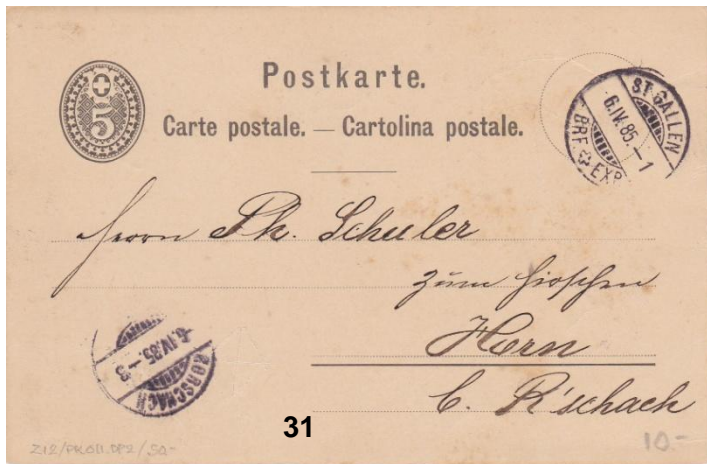 5
Postkarte.
Carte postale. — Cartolina postale.
ST. GALLEN
6.IV.85.–1
BRF. EXP.
Herrn Ph. Schuler
zum Hirschen
Horn
b. R'schach
6.IV.85–3
RORSCHACH
31
Z12/PK011.DP2/50-
10.–